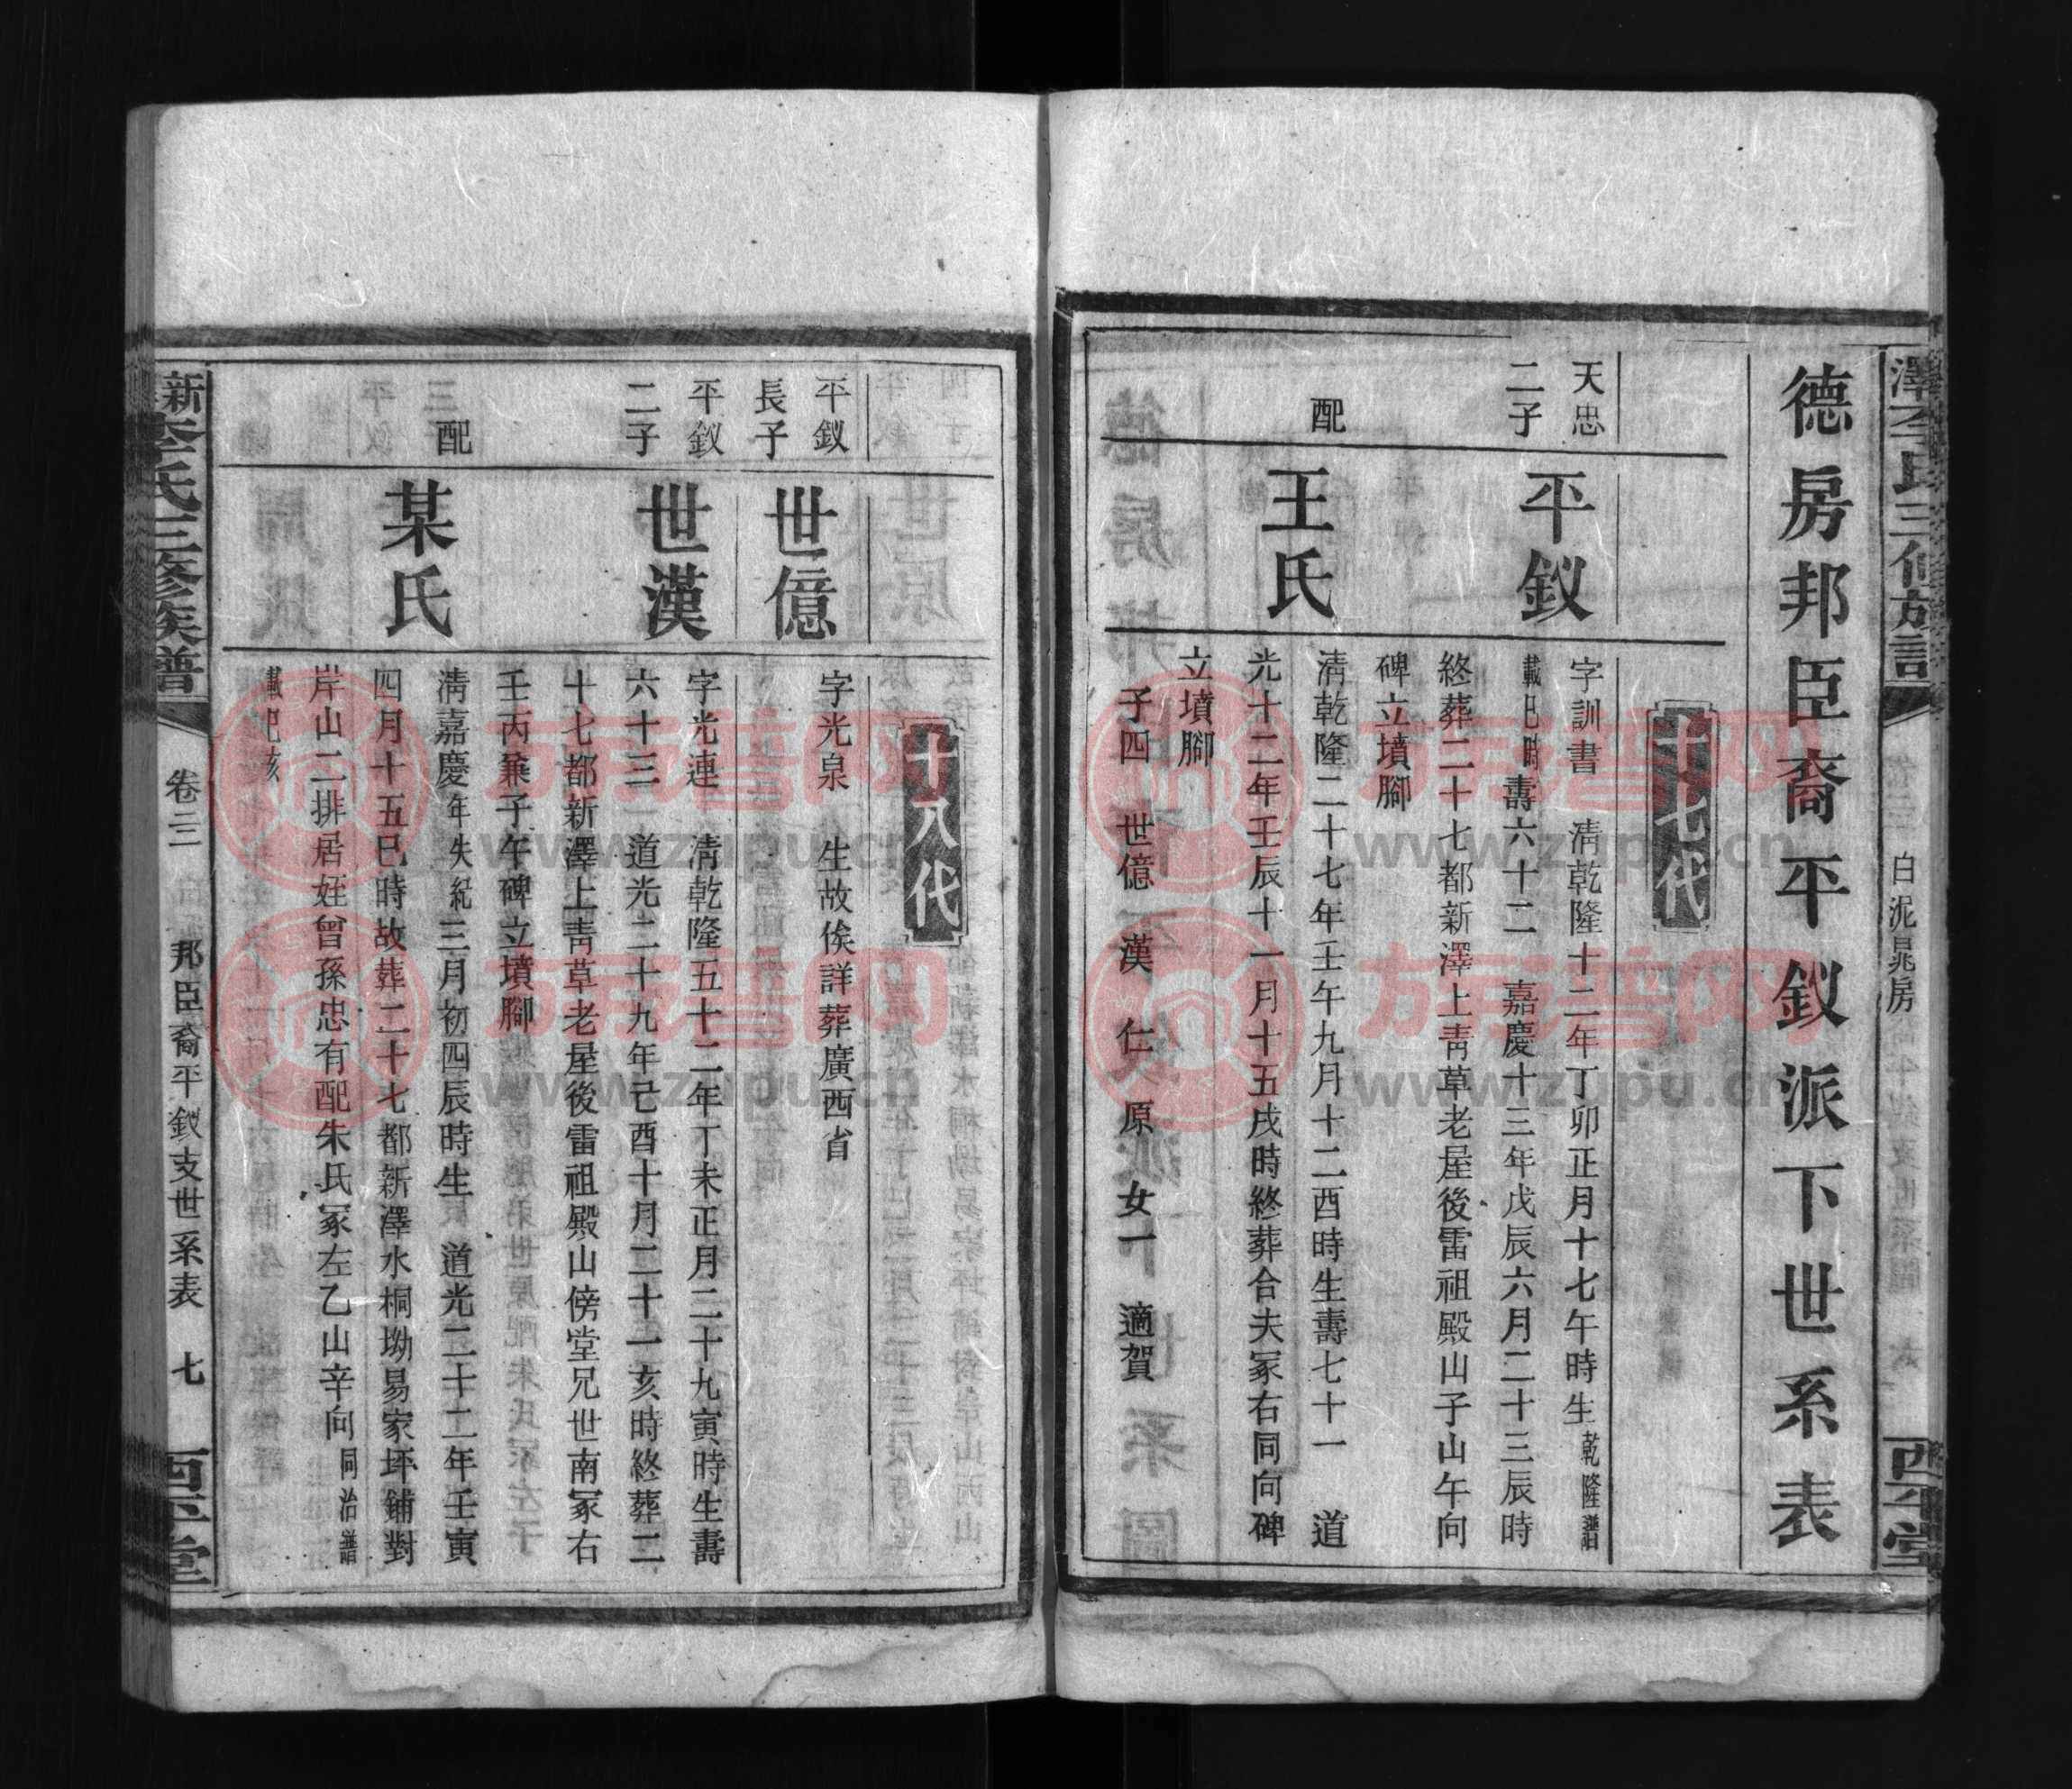 德房邦臣裔平釵派下世系表
十七代
天忠
二子
平釵
字訓書　清乾隆十二年丁卯正月十七午時生乾隆譜
載巳時壽六十二　嘉慶十三年戊辰六月二十三辰時
終葬二十七都新澤上靑草老屋後雷祖殿山子山午向
碑立墳腳
配
王氏
淸乾隆二十七年壬午九月十二酉時生壽七十一　道
光十二年壬辰十一月十五戌時終葬合夫冢右同向碑
立墳腳
子四　世億　漢　仁　原　女一　適賀
白泥晁房
西平堂
十八代
平釵
長子
世億
字光泉　生故俟詳葬廣西省
平釵
二子
世漢
字光連　淸乾隆五十二年丁未正月二十九寅時生壽
六十三　道光二十九年己酉十月二十一亥時終葬二
十七都新澤上靑草老屋後雷祖殿山傍堂兄世南冢右
壬丙兼子午碑立墳腳
配
某氏
淸嘉慶年失紀三月初四辰時生　道光二十二年壬寅
四月十五巳時故葬二十七都新澤水桐坳易家坪鋪對
岸山二排居姪曾孫忠有配朱氏冢左乙山辛向同治譜
載巳亥
新澤李氏三修族譜
卷三
邦臣裔平釵支世系表
七
西平堂